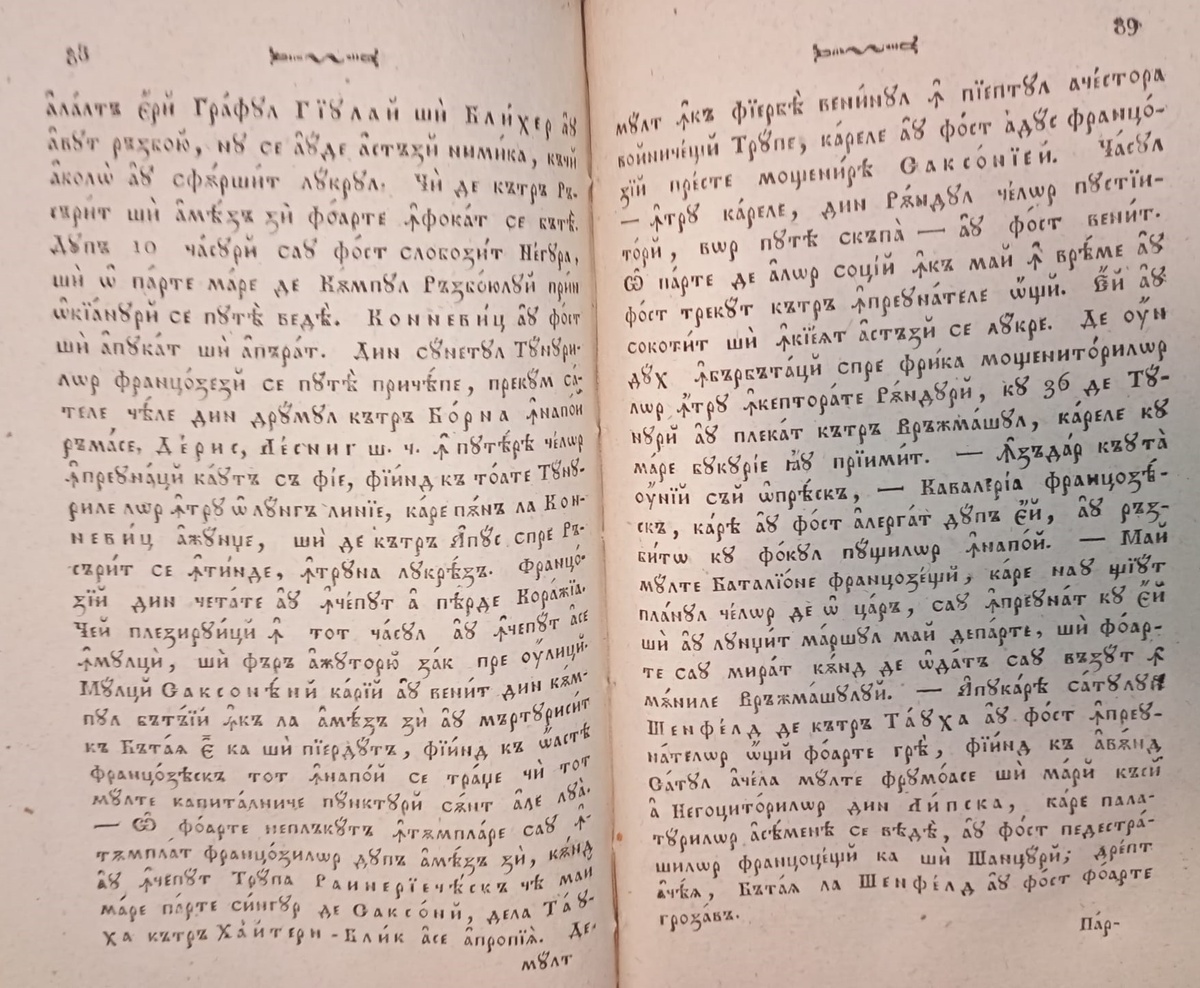 88
а҆ла́лтъ є҆́рй Гра́фꙋл Гїꙋлай шѝ Бли́хер а҆ꙋ
а҆вꙋт ръзбою̀, нꙋ се а҆ꙋ́де а҆стъзй нимика, къчй
а҆колѡ̀ а҆ꙋ сфѫрши́т лꙋкрꙋл. Чѝ де кътръ Ръ-
сърит шѝ а҆мѣ́зъ зѝ фо́арте ꙟ҆фока́т се ба́тѣ.
Дꙋпъ 10 ча́сꙋрй саꙋ фо́ст слобози́т Не́гꙋра,
шѝ ѡ҆ па́рте ма́ре де Кѫ́мпꙋл Ръзбо́юлꙋй при́н
ѡ҆кїа́нꙋрй се пꙋтѣ̀ ведѣ̀. Конневи́ц а҆ꙋ фо́ст
шѝ а҆пꙋка́т шѝ а҆пъра́т. Дин сꙋ́нетꙋл Тꙋ́нꙋри-
лѡр францо́зезй се пꙋтѣ̀ приче́пе, прекꙋм са́-
теле че́ле дин дрꙋ́мꙋл кътръ Бо́рна ꙟ҆напо́й
ръма́се, Де́рис, Ле́сниг ш. ч. ꙟ҆ пꙋте́рѣ че́лѡр
ꙟ҆преꙋна́цй каꙋтъ съ фі́е, фїи́нд къ то́ате Тꙋ́нꙋ-
риле лѡр ꙟ҆трꙋ ѡ҆ лꙋнгъ ли́нїе, ка́ре пѫ́нъ ла Кон-
неви́ц а҆жꙋ́нџе, шѝ де кътръ А҆пꙋ́с спре Ръ-
съри́т се ꙟ҆ти́нде, ꙟ҆трꙋна лꙋкрѣ́зъ. Францо́-
зїй дин чета́те а҆ꙋ ꙟ҆че́пꙋт а҆ пе́рде Кора́жїа.
Чей плезирꙋи́цй ꙟ҆ тот ча́сꙋл а҆ꙋ ꙟ҆чепꙋт а҆се
ꙟ҆мꙋлцѝ, шѝ фъръ а҆жꙋторю̆ за́к пре оу҆́лицй.
Мꙋ́лцй Саксоне́нй ка́рїй а҆ꙋ вени́т дин кѫ́м-
пꙋл бътъ́їй ꙟ҆къ ла а҆мѣ́зъ зѝ а҆ꙋ мъртꙋриси́т
къ Бъта́ꙗ є҆́ ка шѝ пїе́рдꙋтъ, фїи́нд къ ѡ҆́астѣ
францо́зѣскъ тот ꙟ҆напо́й се тра́џе чѝ тот
мꙋлте капита́лниче пꙋнктꙋрй сѫнт а҆ле лꙋа́.
— Ѡ҆ фо́арте неплъкꙋтъ ꙟ҆тѫмпла́ре саꙋ ꙟ҆-
тѫмпла́т францо́зилѡр дꙋпъ а҆мѣ́зъ зѝ, кѫ́нд
а҆ꙋ ꙟ҆чепꙋт Трꙋпа Раинерїече́скъ че май
ма́ре парте си́нгꙋр де Саксо́нй, дела Та́ꙋ-
ха кътръ Ха́йтерн - Бли́к а҆се а҆пропїѧ̀. Де-
мꙋлт
89
мꙋлт ꙟ҆къ фїербѣ̀ вени́нꙋл ꙟ҆ пїептꙋл аче́стора
войниче́щй Трꙋпе, ка́реле а҆ꙋ фо́ст а҆дꙋ́с францо́-
зїй пре́сте мощени́рѣ Саксо́нїей. Ча́сꙋл
— ꙟ҆трꙋ ка́реле, дин Рѫ́ндꙋл че́лѡр пꙋстїи-
то́рй, вѡр пꙋтѣ̀ скъпа̀ — а҆ꙋ фо́ст вени́т.
Ѡ҆ па́рте де а҆лѡр соцїй ꙟ҆къ май ꙟ҆ вре́ме а҆ꙋ
фо́ст трекꙋт кътръ ꙟ҆преꙋна́теле ѡ҆́щй. Є҆́й а҆ꙋ
сокоти́т шѝ ꙟ҆кїеѧт а҆стъзй се лꙋкре. Де оу҆́н
дꙋх ꙟ҆бърбъта́цй спре фри́ка мощенито́рилѡр
лѡр ꙟ҆трꙋ ꙟ҆кептора́те Рѫ́ндꙋрй, кꙋ 36 де Тꙋ-
нꙋрй а҆ꙋ плека́т кътръ Връжма́шꙋл, ка́реле кꙋ
ма́ре бꙋкꙋрі́е ꙗ҆́ꙋ прїими́т. — А҆зъда́р къꙋта̀
оу҆́нїй съй ѡ҆прѣскъ, — Кавале́рїа францозѣ́-
скъ, ка́рѣ а҆ꙋ фо́ст а҆лерга́т дꙋпъ є҆́й, а҆ꙋ ръз-
би́тѡ кꙋ фо́кꙋл пꙋ́щилѡр ꙟ҆напо́й. — Май
мꙋ́лте Баталїо́не францозе́щй, ка́ре наꙋ щїꙋт
пла́нꙋл че́лѡр де ѡ҆ ца́ръ, саꙋ ꙟ҆преꙋна́т кꙋ є҆́й
шѝ а҆ꙋ лꙋнџи́т ма́ршꙋл май депа́рте, шѝ фо́ар-
те саꙋ мира́т кѫ́нд де ѡ҆да́тъ саꙋ възꙋт ꙟ҆
мѫ́ниле Връжма́шꙋлꙋй. — А҆пꙋка́рѣ са́тꙋлꙋй
Шенфе́лд де кътръ Та́ꙋха а҆ꙋ фо́ст ꙟ҆преꙋ-
на́телѡр ѡ҆́щй фо́арте грѣ̀, фїи́нд къ а҆вѫ́нд
Са́тꙋл а҆че́ла мꙋлте фрꙋмо́асе шѝ ма́рй къ́сй
а҆ Негоцито́рилѡр дин Ли́пска, ка́ре пала́-
тꙋрилѡр а҆се́менѣ се ве́дѣ, а҆ꙋ фо́ст педестра́-
шилѡр францоце́щй ка шѝ Шанцꙋрй; дре́пт
а҆че́ѧ, Бъта́ꙗ ла Шенфе́лд а҆ꙋ фо́ст фо́арте
гроза́въ.
Па́р-